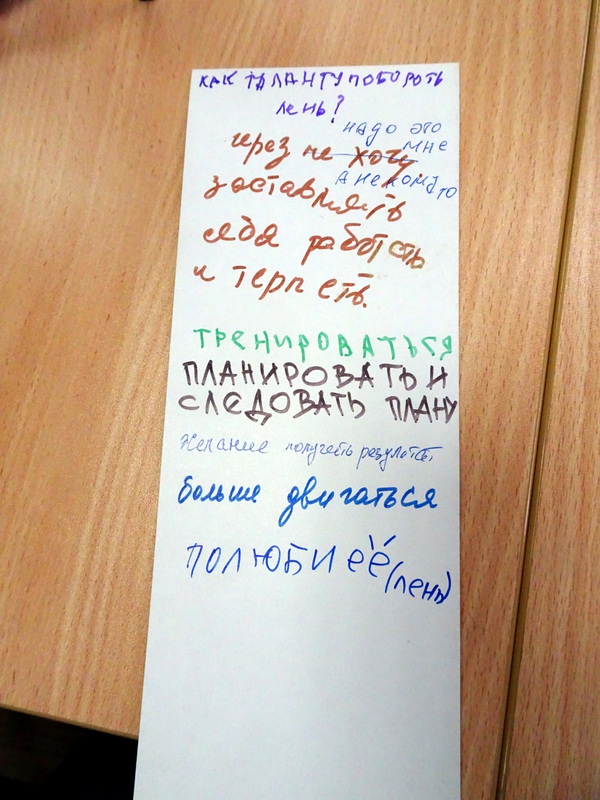 КАК ТАЛАНТУ ПОБОРОТЬ
ЛЕНЬ?
надо это
мне
через не хочу
а не кому то
заставлять
себя работать
и терпеть.
ТРЕНИРОВАТЬСЯ
ПЛАНИРОВАТЬ И
СЛЕДОВАТЬ ПЛАНУ
Желание получать результат
больше двигаться
ПОЛЮБИ её (лень)